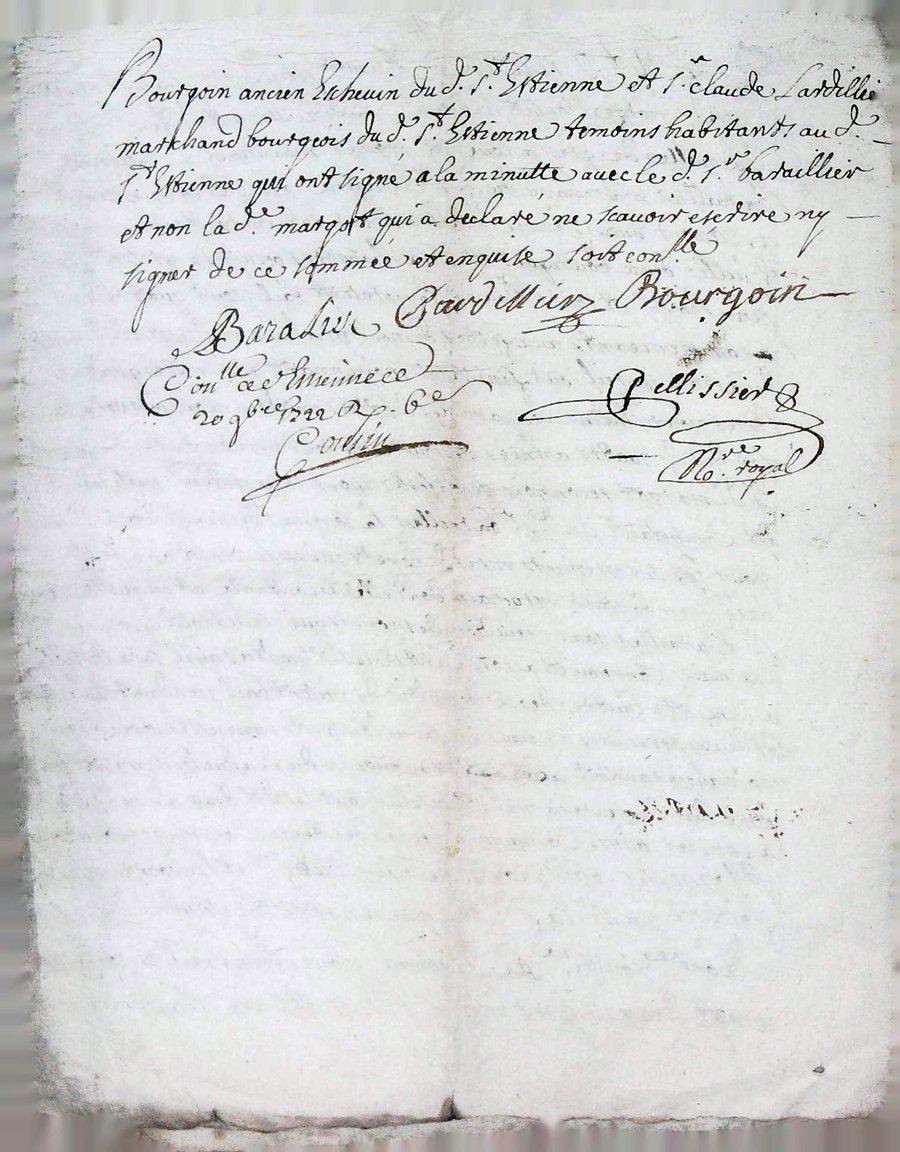 Bourgoin ancien Eschevin du d. St. Estienne et Sr. claude Lardillie
marchand bourgeois du d. St. Estienne temoins habitants au d.
St. Estienne qui ont signé a la minutte avec le d. Sr. baraillier
et non la de. margot qui a declaré ne scavoir escrire ny
signer de ce sommée et enquise soit conllé
Baralier Lardillier Bourgoin
Conllé a St
20 9bre 1722
Cousin
Pellissier
Nore. royal